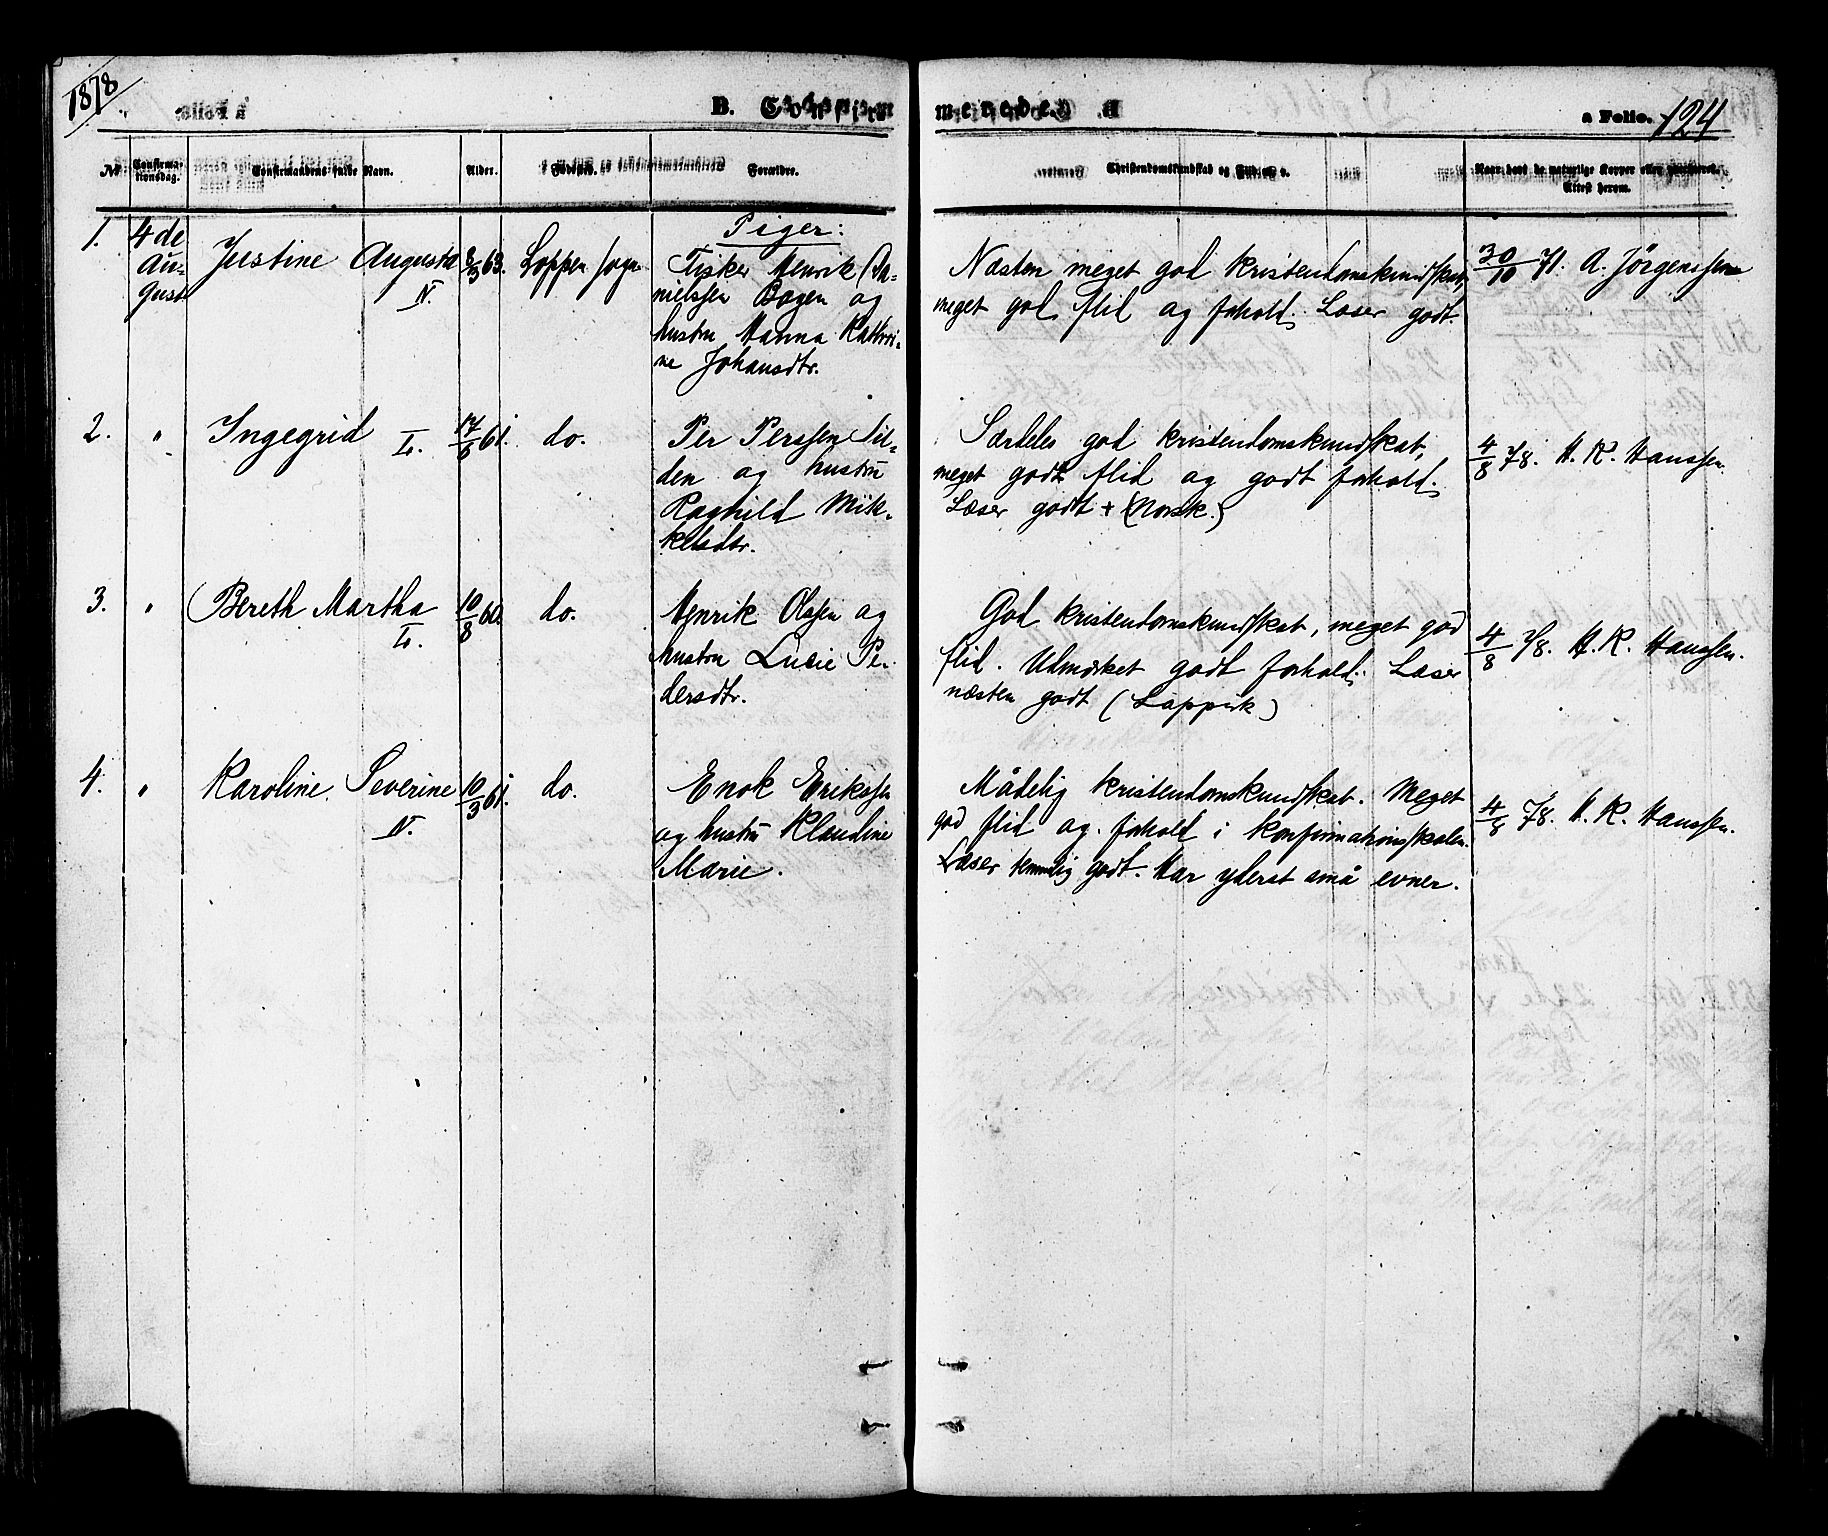 1878
B. Confirmerede.
a Folio. 124
№
Confirmationsdag.
Confirmandens fulde Navn.
Alder.
Fødested.
Forældre.
Christendomskundskab og Flid m. v.
Naar havt de naturlige Kopper eller vaccineret. Attest herom.
Piger:
1.
4de
Au-
gust
Justine Augusta
N.
8/3 63.
Loppen sogn
Fisker Henrik Da-
nielssen Bogen og
hustru Hanna Kathri-
ne Johansdtr.
Næsten meget god kristendomskundskab,
meget god flid og forhold. Læser godt.
30/10 71. A. Jörgenssen
2.
"
Ingegrid
L.
61.
do.
Per Perssen Sil-
den og hustru
Ragnild Mik-
kelsdtr.
Særdeles god kristendomskundskab,
meget godt flid og godt forhold.
Læser godt + (Norsk.)
4/8 78. H. K. Hanssen.
3.
"
Bereth Martha
L.
10/8 60.
do.
Henrik Olssen og
hustru Lucie Pe-
dersdtr.
God kristendomskundskab, meget god
flid. Udmærket godt forhold. Læser
næsten godt (Lappisk)
4/8 78. H. K. Hanssen.
4.
"
Karoline Severine
N.
10/3 61.
do.
Enok Erikssen
og hustru Klaudine
Marie.
Mådelig kristendomskundskab. Meget
god flid og forhold i konfirmationsskolen.
Læser temmelig godt. Har yderst små evner.
4/8 78. H. K. Hanssen.